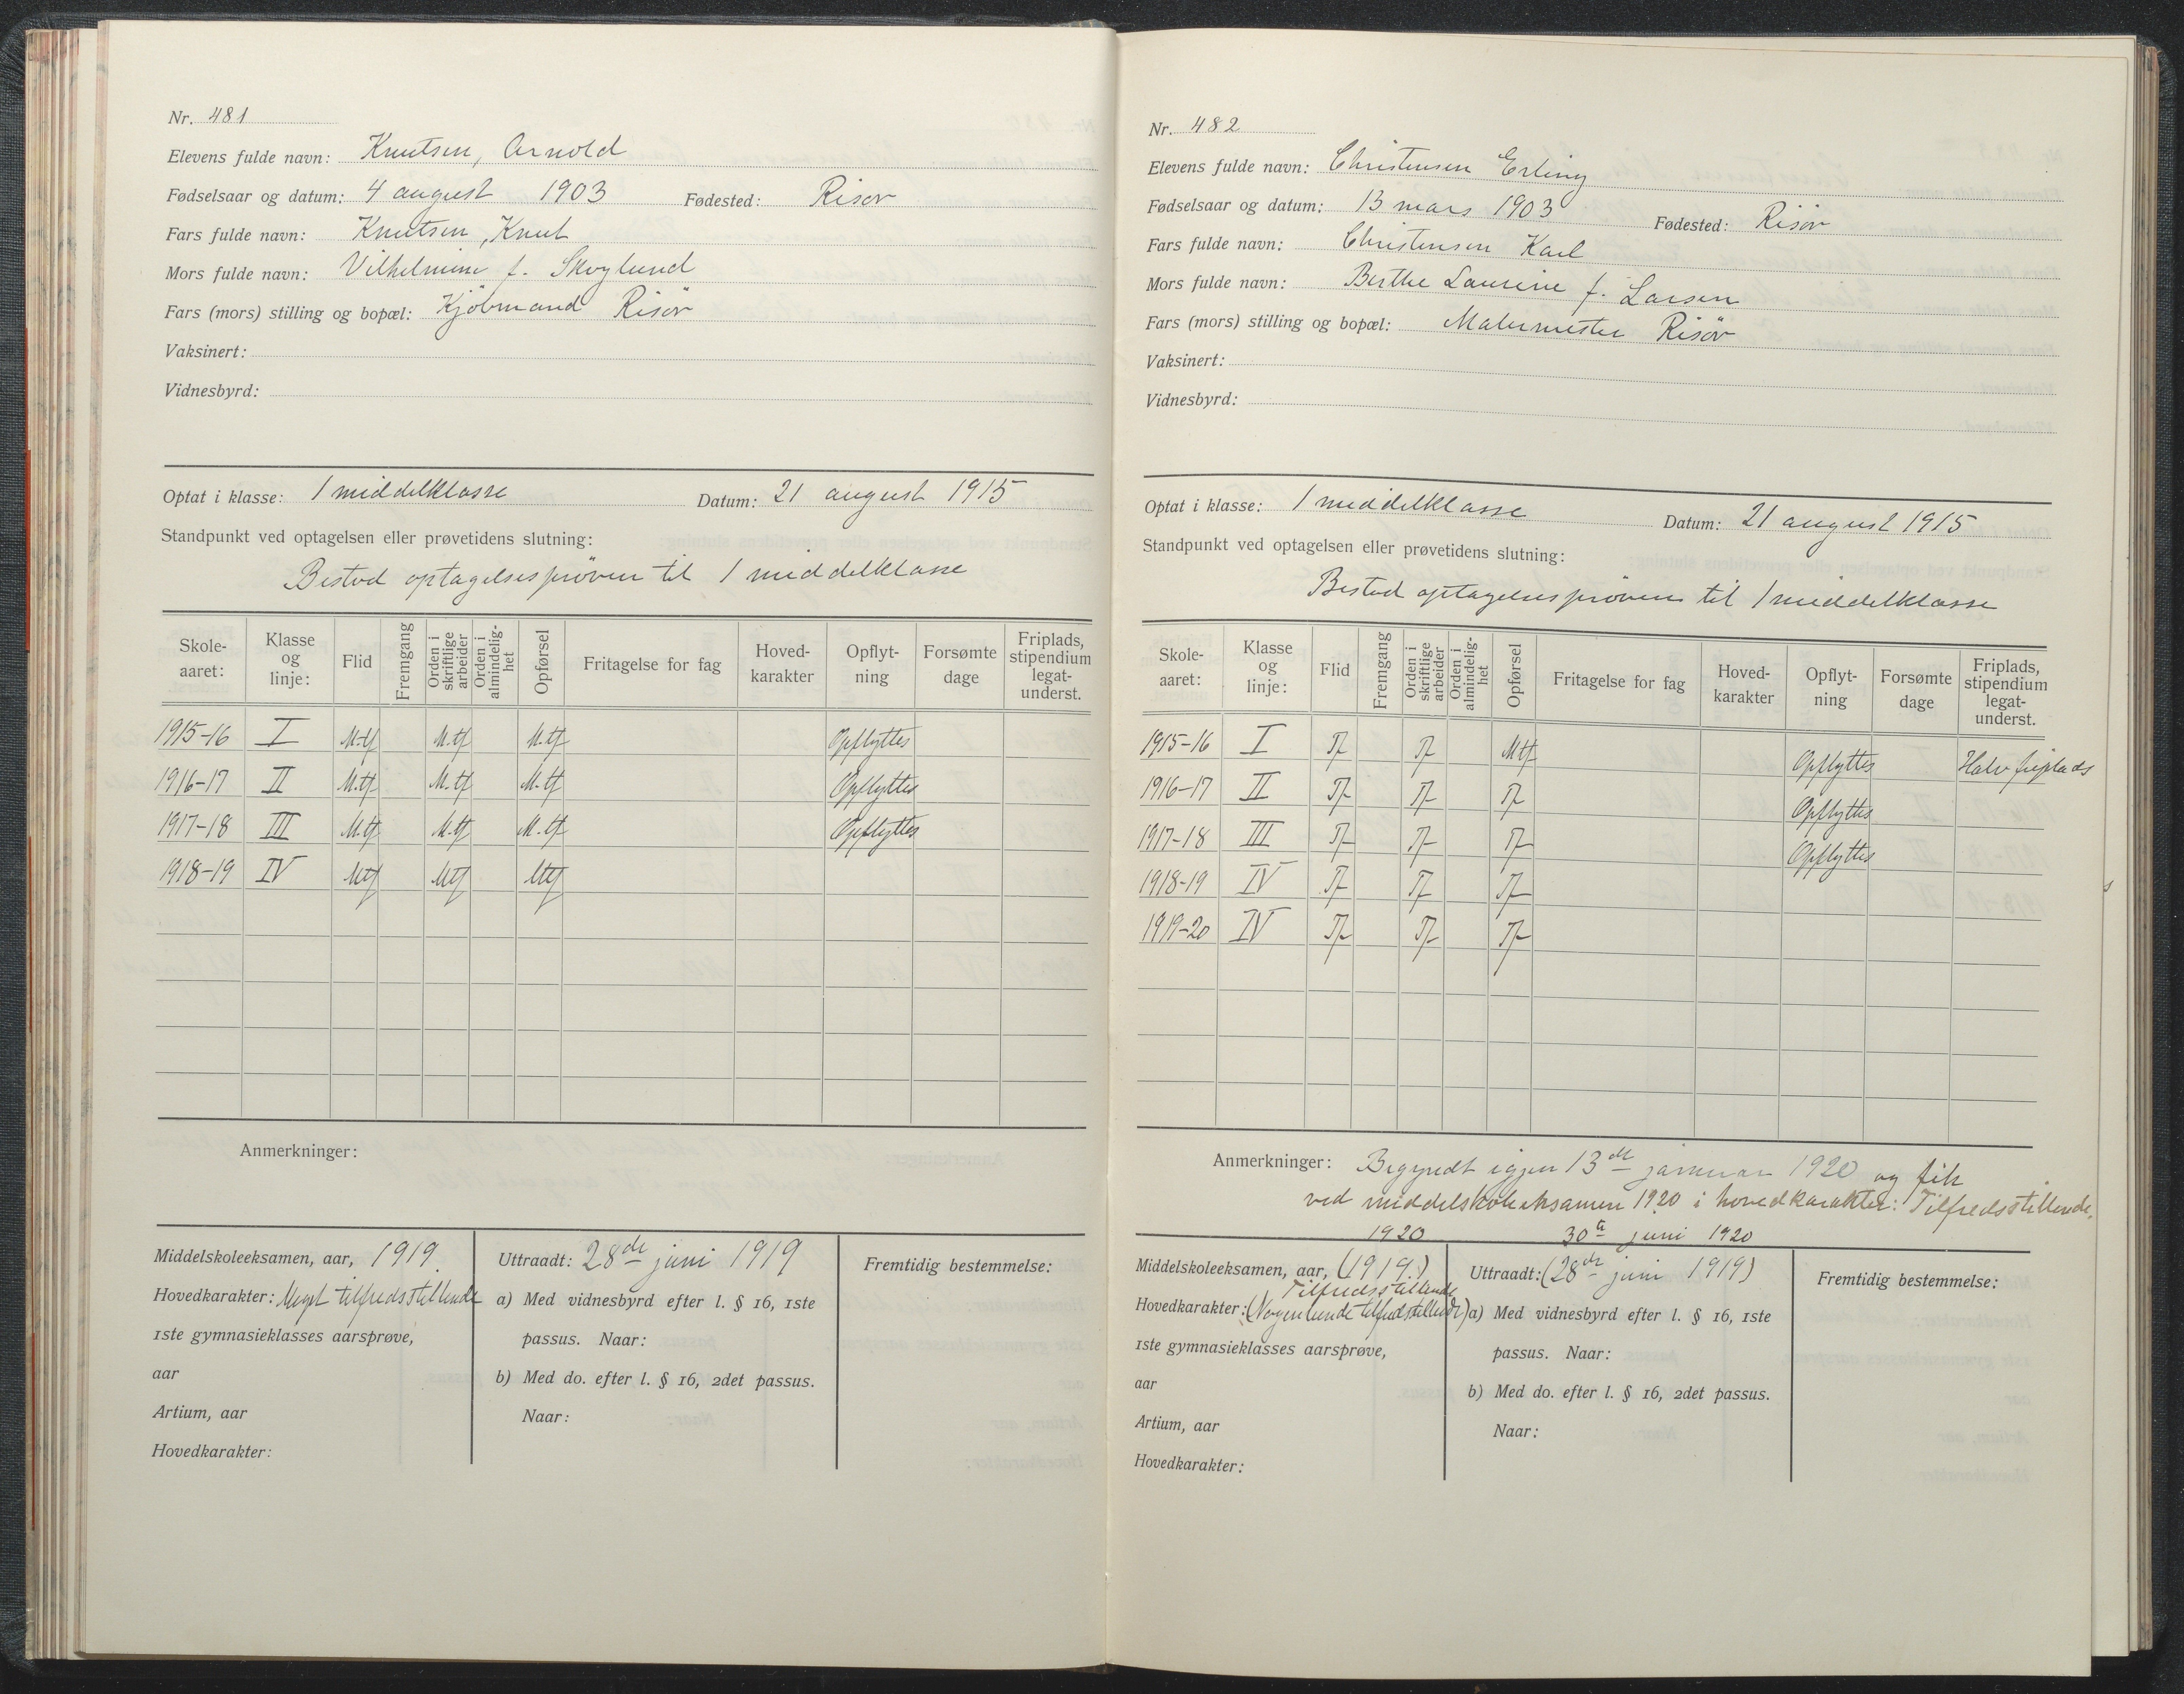 Nr. 481
Elevens fulde navn: Knutsen, Arnold
Fødselsaar og datum: 4 august 1903 Fødested: Risør
Fars fulde navn: Knutsen, Knut
Mors fulde navn: Vilhelmine f. Skoglund
Fars (mors) stilling og bopæl: Kjöbmand Risör
Vaksinert:
Vidnesbyrd:
Optat i klasse: 1 middelklasse Datum: 21 august 1915
Standpunkt ved optagelsen eller prøvetidens slutning:
Bestod optagelsespröven til 1 middelklasse
Skole-aaret: Klasse og linje: Flid Fremgang Orden i skriftlige arbeider Orden i almindelig-het Opførsel Fritagelse for fag Hoved-karakter Opflyt-ning Forsømte dage Friplads, stipendium legat-underst.
1915-16 I M.tf M.tf M.tf Opflyttes
1916-17 II M.tf M.tf M.tf Opflyttes
1917-18 III M.tf M.tf M.tf Opflyttes
1918-19 IV Mtf Mtf Mtf
Anmerkninger:
Middelskoleeksamen, aar, 1919.
Hovedkarakter: Meget tilfredsstillende
1ste gymnasieklasses aarsprøve,
aar
Artium, aar
Hovedkarakter:
Uttraadt: 28de juni 1919
a) Med vidnesbyrd efter l. § 16, 1ste
passus. Naar:
b) Med do. efter l. § 16, 2det passus.
Naar:
Fremtidig bestemmelse:
Nr. 482
Elevens fulde navn: Christensen Erling
Fødselsaar og datum: 13 mars 1903 Fødested: Risör
Fars fulde navn: Christensen Karl
Mors fulde navn: Berthe Laurine f. Larsen
Fars (mors) stilling og bopæl: Malermester Risör
Vaksinert:
Vidnesbyrd:
Optat i klasse: 1 middelklasse Datum: 21 august 1915
Standpunkt ved optagelsen eller prøvetidens slutning:
Bestod optagelsespröven til 1 middelklasse
Skole-aaret: Klasse og linje: Flid Fremgang Orden i skriftlige arbeider Orden i almindelig-het Opførsel Fritagelse for fag Hoved-karakter Opflyt-ning Forsømte dage Friplads, stipendium legat-underst.
1915-16 I Tf Tf Mtf Opflyttes Halv friplads
1916-17 II Tf Tf Tf Opflyttes
1917-18 III Tf Tf Tf Opflyttes
1918-19 IV Tf Tf Tf
1919-20 IV Tf Tf Tf
Anmerkninger: Begyndt igjen 13de januar 1920 og fik
ved middelskoleeksamen 1920 i hovedkarakter: Tilfredsstillende.
1920
Middelskoleeksamen, aar, (1919.)
Tilfredsstillende
Hovedkarakter: (Nogenlunde tilfredsstillende)
1ste gymnasieklasses aarsprøve,
aar
Artium, aar
Hovedkarakter:
30te juni 1920
Uttraadt: (28de juni 1919)
a) Med vidnesbyrd efter l. § 16, 1ste
passus. Naar:
b) Med do. efter l. § 16, 2det passus.
Naar:
Fremtidig bestemmelse: